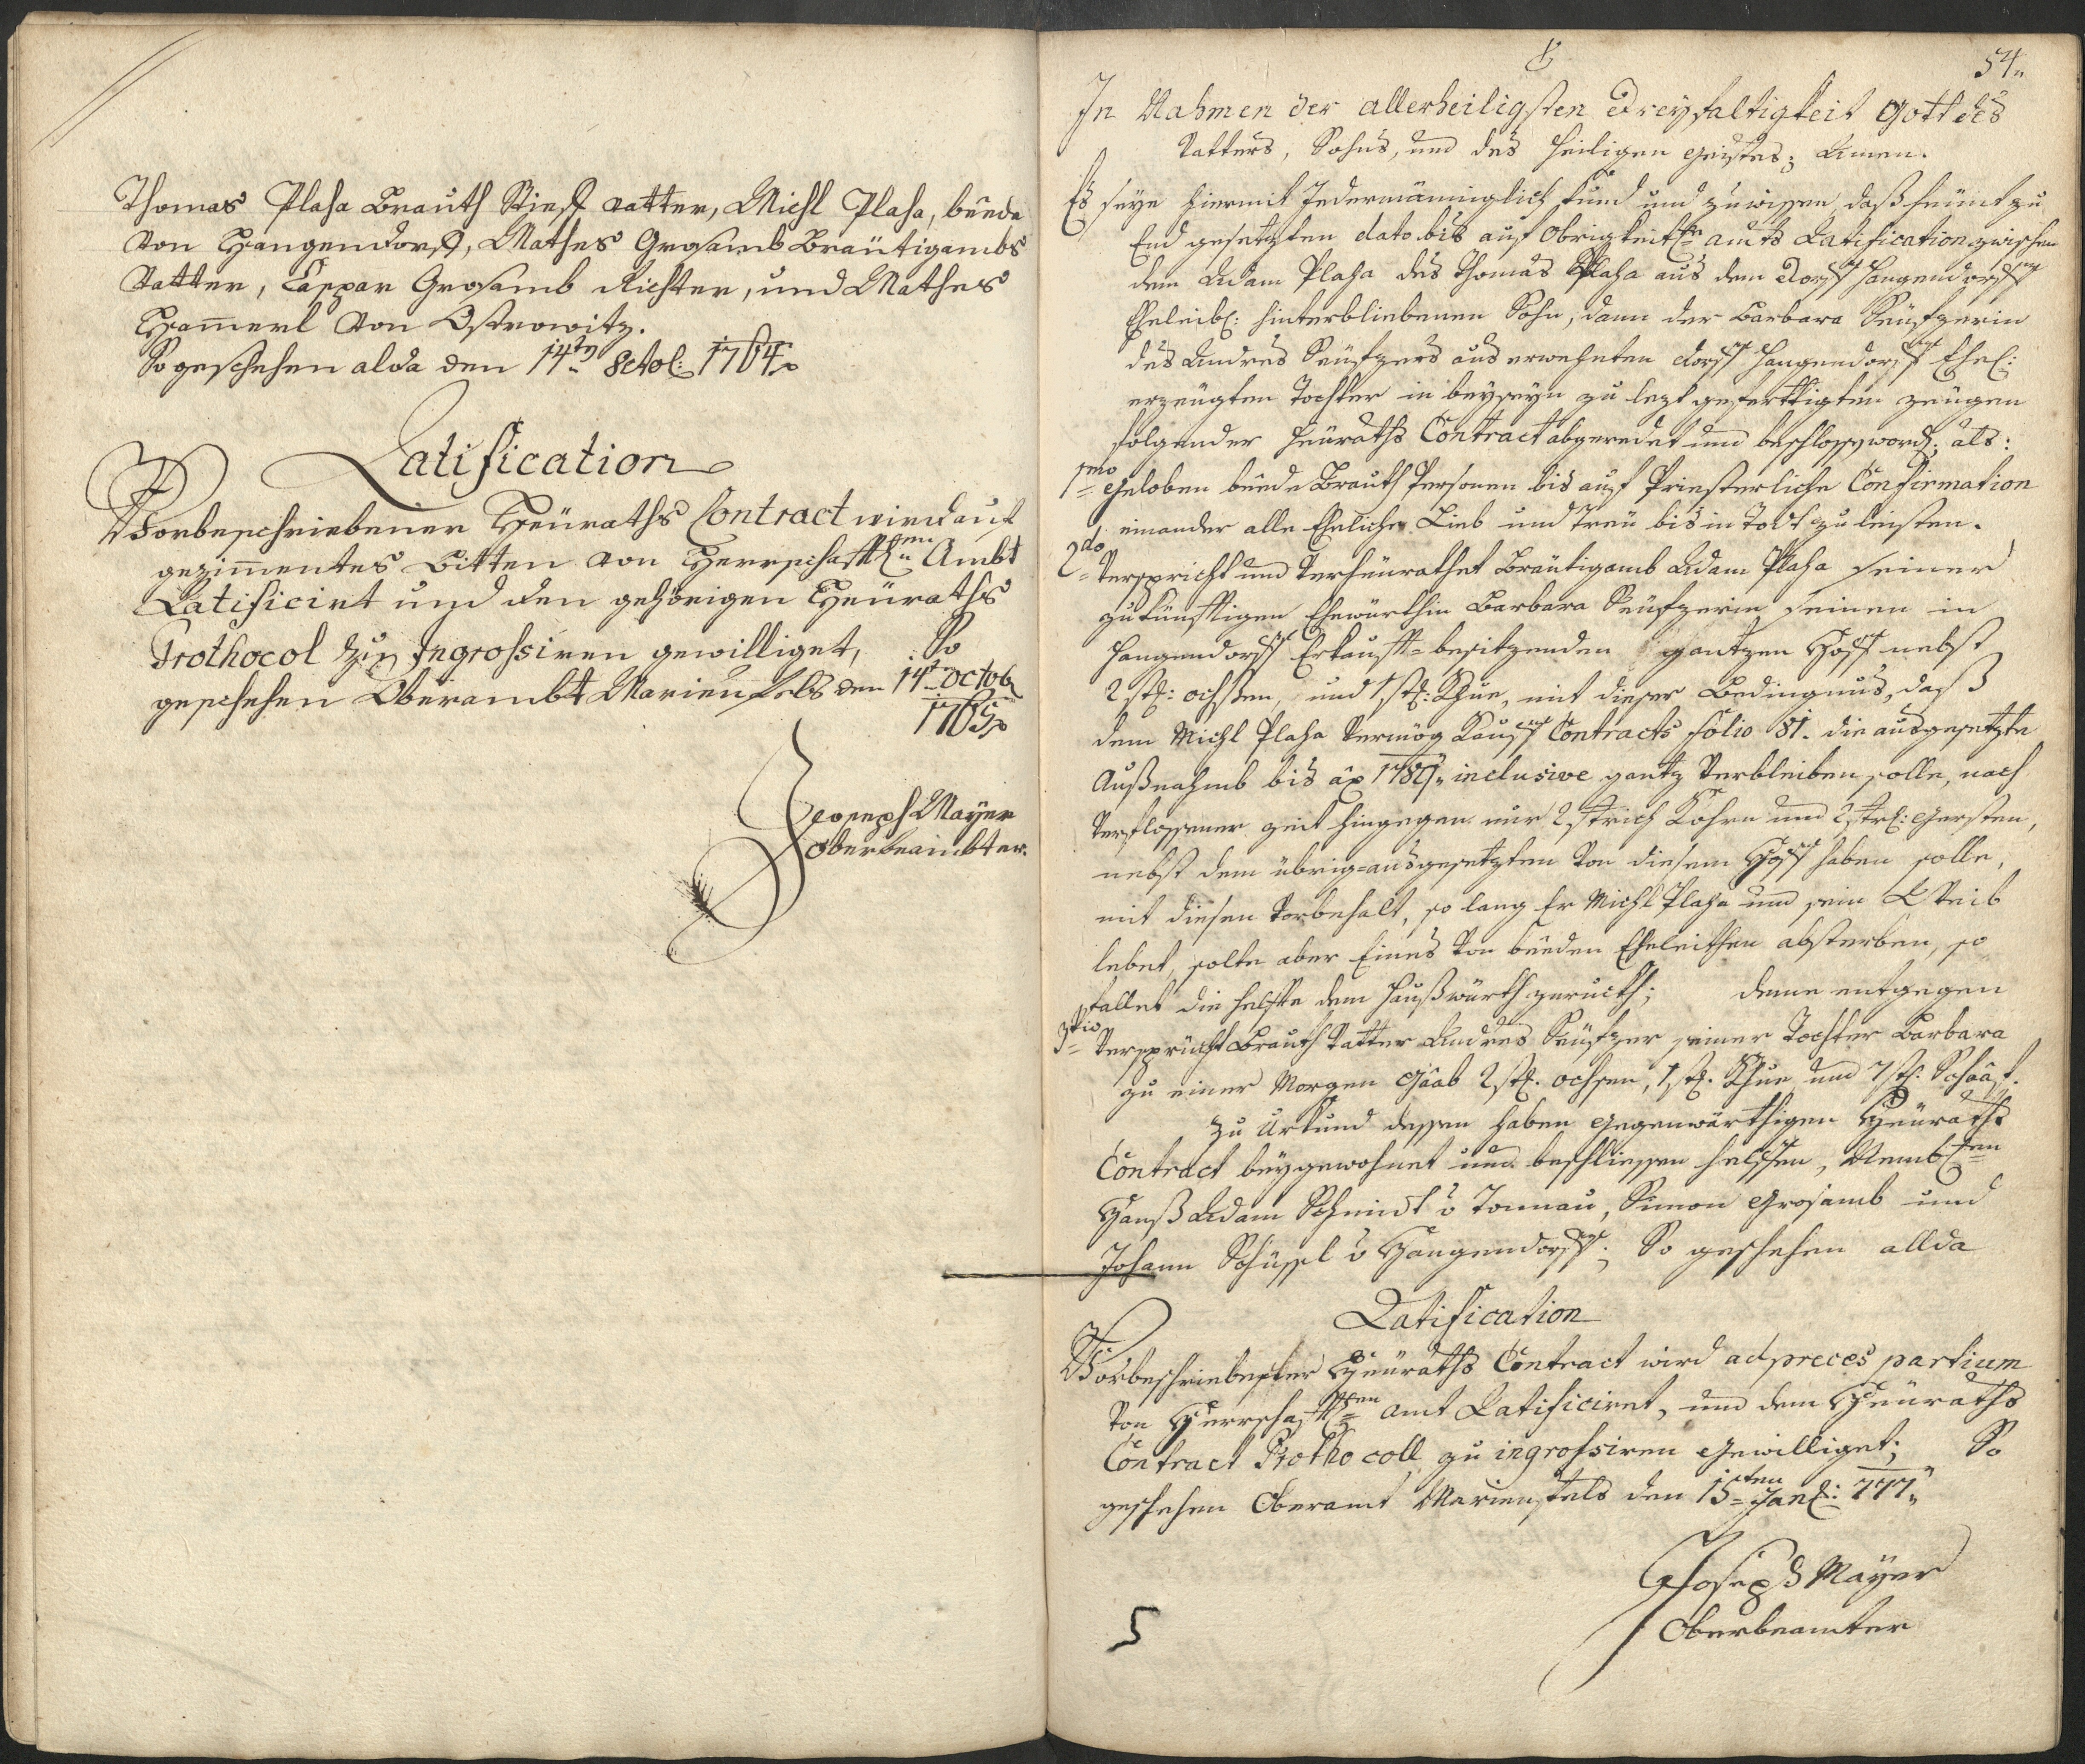 Thomas Plaha Brauth Stieff vatter, Michl Plaha, beede
von Hangendorff, Mathes Grosamb Bräutigambs
Vatter, Caspar Grosamb Richter, und Mathes
Ham̅erl von Ostrowitz.
So geschehen alda den 14ten 8ctob: 1764
Ratification
Vorbeschriebener Heuraths Contract wird auf
gezim̅entes Bitten von Herrschafftl:en Ambt
Ratificirt und den gehörigen Heuraths
Prothocol zu Ingrossiren gewilliget, So
geschehen Oberambt Marienfels den 14ten octob
1765
Joseph Mayer
Oberbeambter.
54.
In Nahmen der allerheiligsten Dreyfaltigkeit Gott des
Vatters, Sohns, und des heiligen Geistes; Amen.
Es seye hiermit Jedermänniglich kund und zu wissen daß heunt zu
End gesetzten dato bis auf Obrigkeitl:r amts Ratification zwischen
dem Adam Plaha des Thomas Plaha aus dem Dorff Hangendorff
Eheleibl: hinterbliebenen Sohn, dann der Barbara Seufzerin
des Andres Seufzers aus erwehnten dorff Hangendorff Ehel:
erzeugten Tochter in beyseyn zu lezt gefertigten zeugen
folgender Heuraths Contract abgeredet und beschlossen word: als:
1mo Geloben beede Brauth Personen bis auf Priesterliche Confirmation
einander alle Eheliche Lieb und Treu bis in Todt zu leisten.
2do Verspricht und Verheurathet Bräutigamb Adam Plaha seiner
zukünfftigen Ehewürthin Barbara Seufzerin seinen in
Hangendorff Erkaufft-besitzenden gantzen Hoff nebst
2 stk: ochsen, und 1 stk: Khue, mit dieser Bedingnus, daß
dem Michl Plaha Vermög Kauff Contracts folio 81. die ausgesetzte
Außnahmb bis aō 178 inclusive gantz Verbleiben solle, nach
Verflossener zeit hingegen nur 2 strich Kohrn und 2 str: Gersten,
nebst dem übrig-ausgesetzten Von diesem Hoff haben solle,
mit diesen Vorbehalt, so lang Er Michl Plaha und sein Weib
lebet, solte aber Eines Von beeden Eheleithen absterben, so
fallet die helffte dem Haußwürth zuruckh; deme entgegen
3tio Versprücht Brauth Vatter Andres Seufzer seiner Tochter Barbara
zu einer Morgen Gaab 2 stk. ochsen, 1 stk. Khue und 7 stk. Schaaf.
Zu Urkund dessen haben gegenwärthigen Heuraths
Contract beygewohnet und beschliessen helffen, Nembl:en
Hanß Adam Schmidt v Tonnau, Simon Grosamb und
Johann Schüssl v Hangendorff; So geschehen allda
Ratification
Vorbeschriebener Heuraths Contract wird ad preces partium
Von Herrschafftl:en amt Ratificiret, und dem Heuraths
Contract Prothocoll zu ingrossiren gewilliget; So
geschehen Oberamt Marienfels den 15ten Jan: 777
Joseph Mayer
Oberbeamter
5